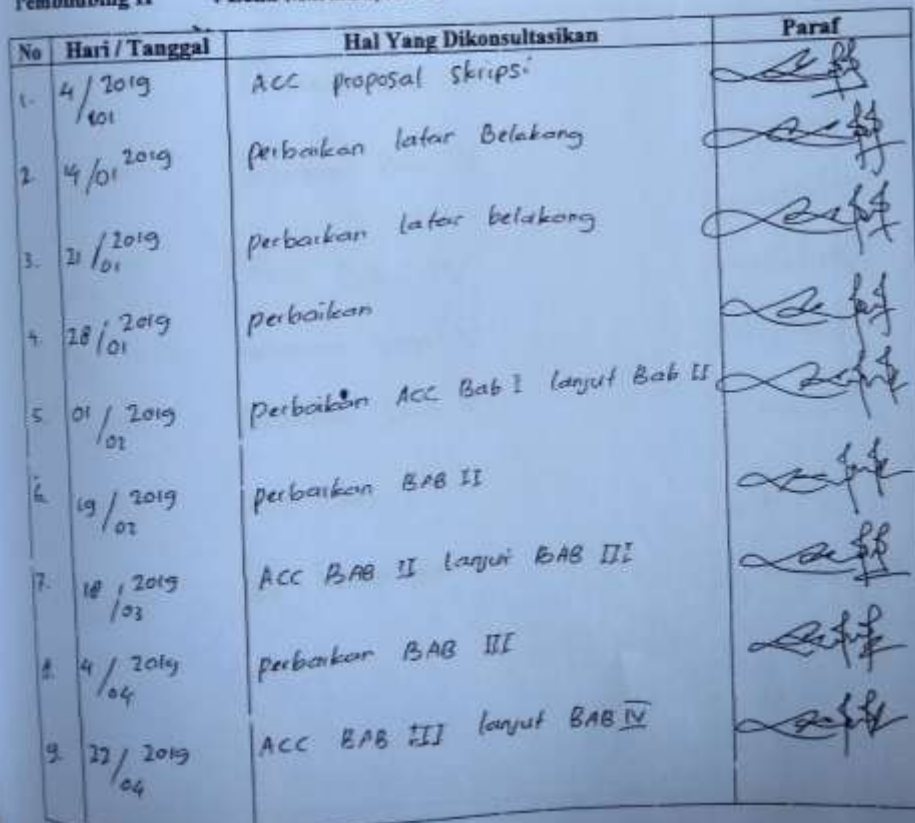 Pembimbing II
No Hari / Tanggal Hal Yang Dikonsultasikan Paraf
1. 4/01 2019 ACC proposal skripsi
2. 14/01 2019 perbaikan latar Belakang
3. 21/01 2019 perbaikan latar belakang
4. 28/01 2019 perbaikan
5. 01/02 2019 perbaikan ACC Bab I lanjut Bab II
6. 19/02 2019 perbaikan BAB II
7. 18/03 2019 ACC BAB II lanjut BAB III
8. 4/04 2019 perbaikan BAB III
9. 22/04 2019 ACC BAB III lanjut BAB IV